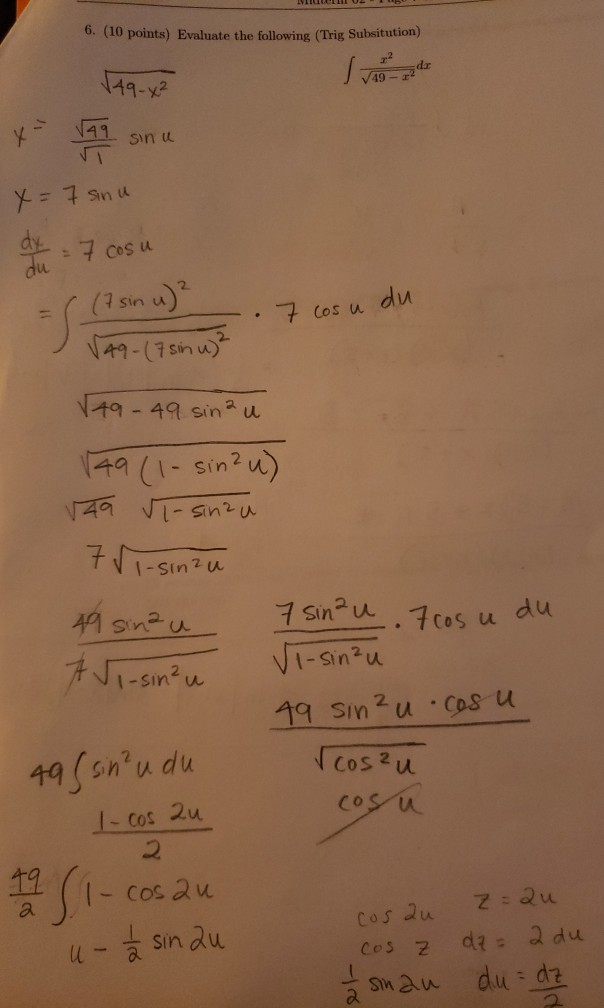 6. (10 points) Evaluate the following (Trig Subsitution)
∫ x²/√(49 − x²) dx
√(49-x²)
x = √49/√1 sin u
x = 7 sin u
dx/du = 7 cos u
= ∫ (7 sin u)²/√(49-(7 sin u)²) · 7 cos u du
√(49 - 49 sin² u)
√(49 (1 - sin² u))
√49 √(1 - sin² u)
7 √(1 - sin² u)
49 sin² u / 7 √(1 - sin² u)
7 sin² u / √(1 - sin² u) · 7 cos u du
49 sin² u · cos u / √(cos² u)
cos u
49 ∫ sin² u du
1 - cos 2u / 2
49/2 ∫ 1 - cos 2u
u - 1/2 sin 2u
cos 2u z = 2u
cos z dz = 2 du
1/2 sin 2u du = dz/2